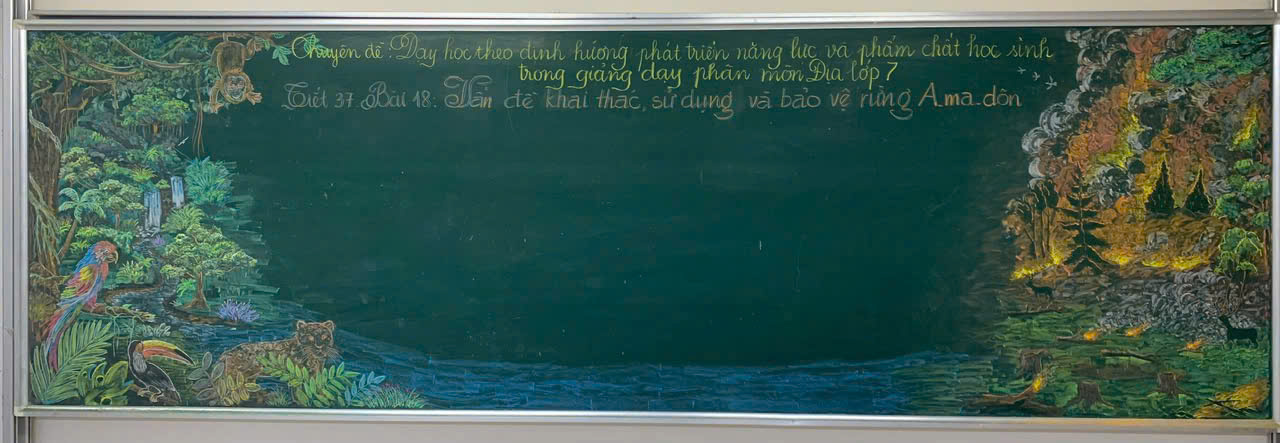 Chuyên đề: Dạy học theo định hướng phát triển năng lực và phẩm chất học sinh
trong giảng dạy phân môn Địa lớp 7
Tiết 37 Bài 18: Vấn đề khai thác, sử dụng và bảo vệ rừng A.ma.dôn